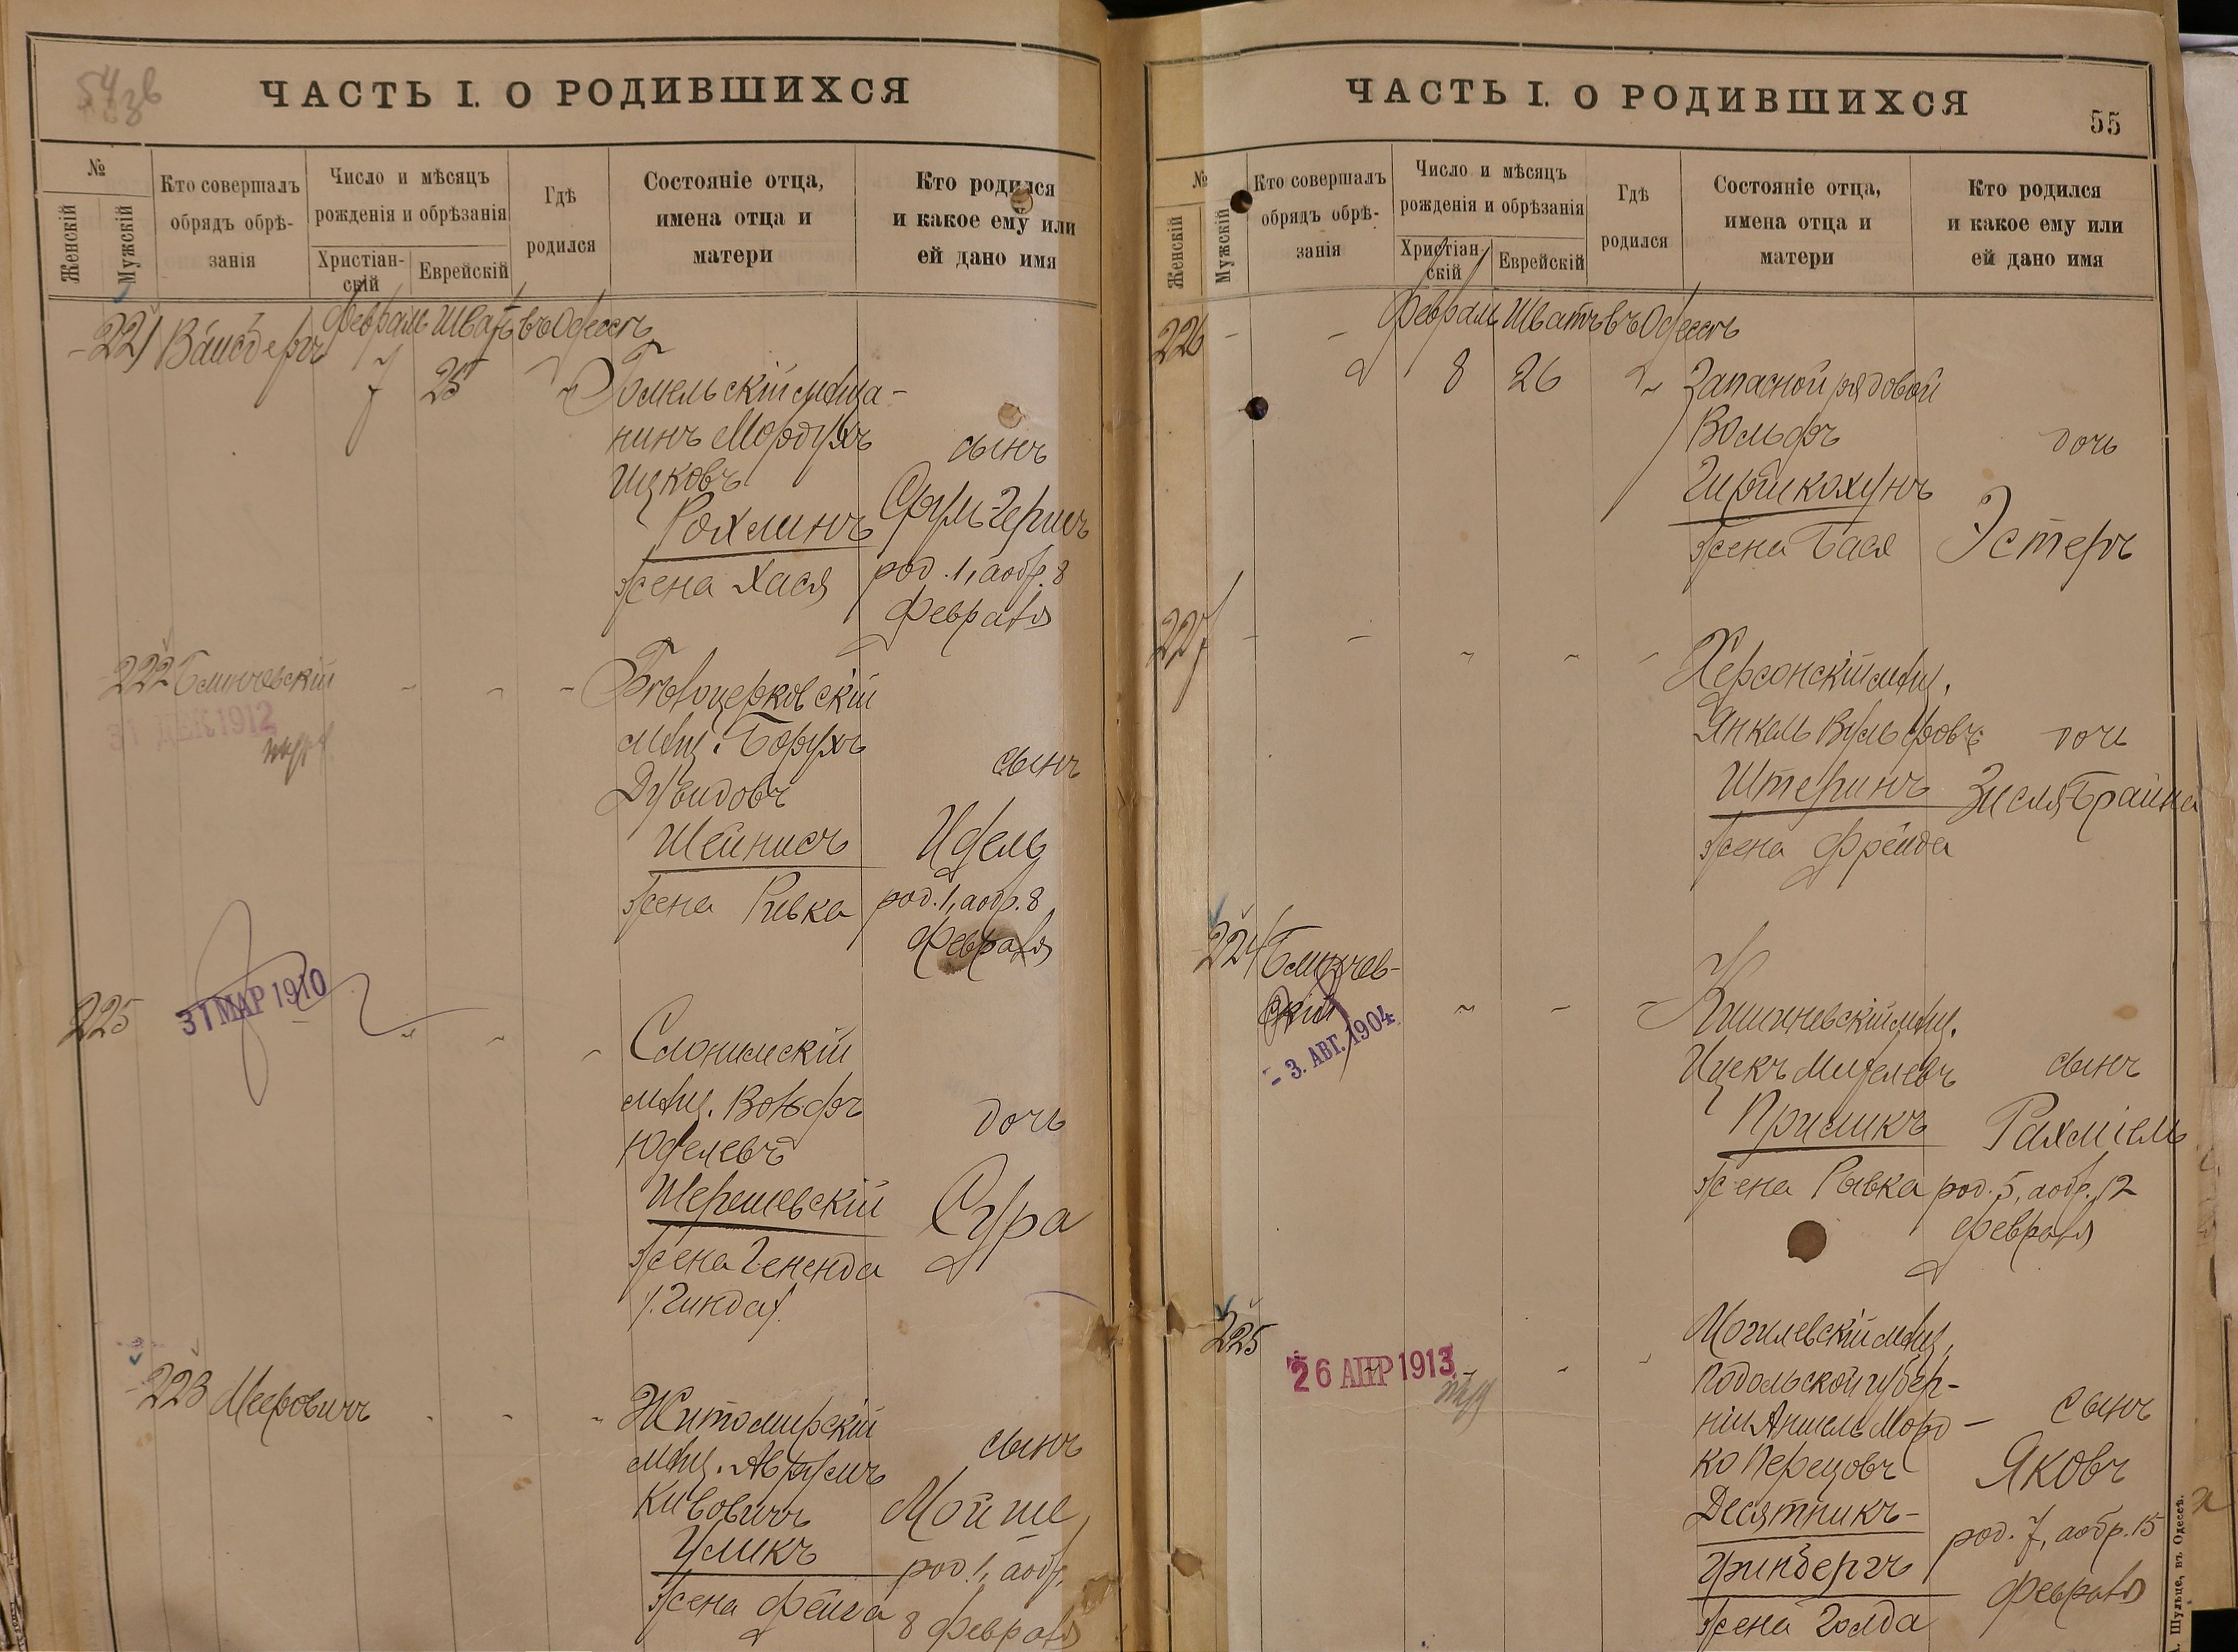 54 зв
ЧАСТЬ I. О РОДИВШИХСЯ
№
Женскій
Мужскій
Кто совершалъ
обрядъ обрѣ-
занія
Число и мѣсяцъ
рожденія и обрѣзанія
Христіан-
скій
Еврейскій
Гдѣ
родился
Состояніе отца,
имена отца и
матери
Кто родился
и какое ему или
ей дано имя
221 Вайсбергъ
Февраль Шватъ въ Одессѣ
7 25
Гомельскій мѣща-
нинъ Мордухъ
Ицковъ
Рохлинъ
жена Хася
сынъ
Сруль-Гершъ
род. 1, а обр. 8
февраля
222 Блинчевскій
31 ДЕК 1912
Бѣлоцерковскій
мѣщ. Борухъ
Дувидовъ
Шейнисъ
жена Ривка
сынъ
Идель
род. 1, а обр. 8
февраля
225
31 МАР 1910
Слонимскій
мѣщ. Вольфъ
Юделевъ
Шерешевскій
жена Гененда
/Гинда/.
дочь
Сура
223 Мееровичъ
Житомирскій
мѣщ. Аврумъ
Кивовичъ
Уликъ
жена Фейга
сынъ
Мойше
род. 1, а обр.
8 февраля
ЧАСТЬ I. О РОДИВШИХСЯ
55
№
Женскій
Мужскій
Кто совершалъ
обрядъ обрѣ-
занія
Число и мѣсяцъ
рожденія и обрѣзанія
Христіан-
скій
Еврейскій
Гдѣ
родился
Состояніе отца,
имена отца и
матери
Кто родился
и какое ему или
ей дано имя
226
Февраль Шватъ въ Одессѣ
8 26
Запасной рядовой
Вольфъ
жена Бася
дочь
Эстеръ
227
Херсонскій мѣщ.
Янкель Вульфовъ
Штеринъ
жена Фрейда
дочь
Зисля-Брайна
224 Блинчев-
скій
- 3. АВГ. 1904
Кишиневскій мѣщ.
Ицекъ
Примикъ
жена Рывка
сынъ
Рахміель
род. 5, а обр. 12
февраля
225
26 АПР 1913
Могилевскій мѣщ,
Подольской губер-
ніи Аншель Морд-
ко Перецовъ
Десятникъ-
Гринбергъ
жена Голда
сынъ
Яковъ
род. 7, а обр. 15
февраля
Шульце, въ Одессѣ.